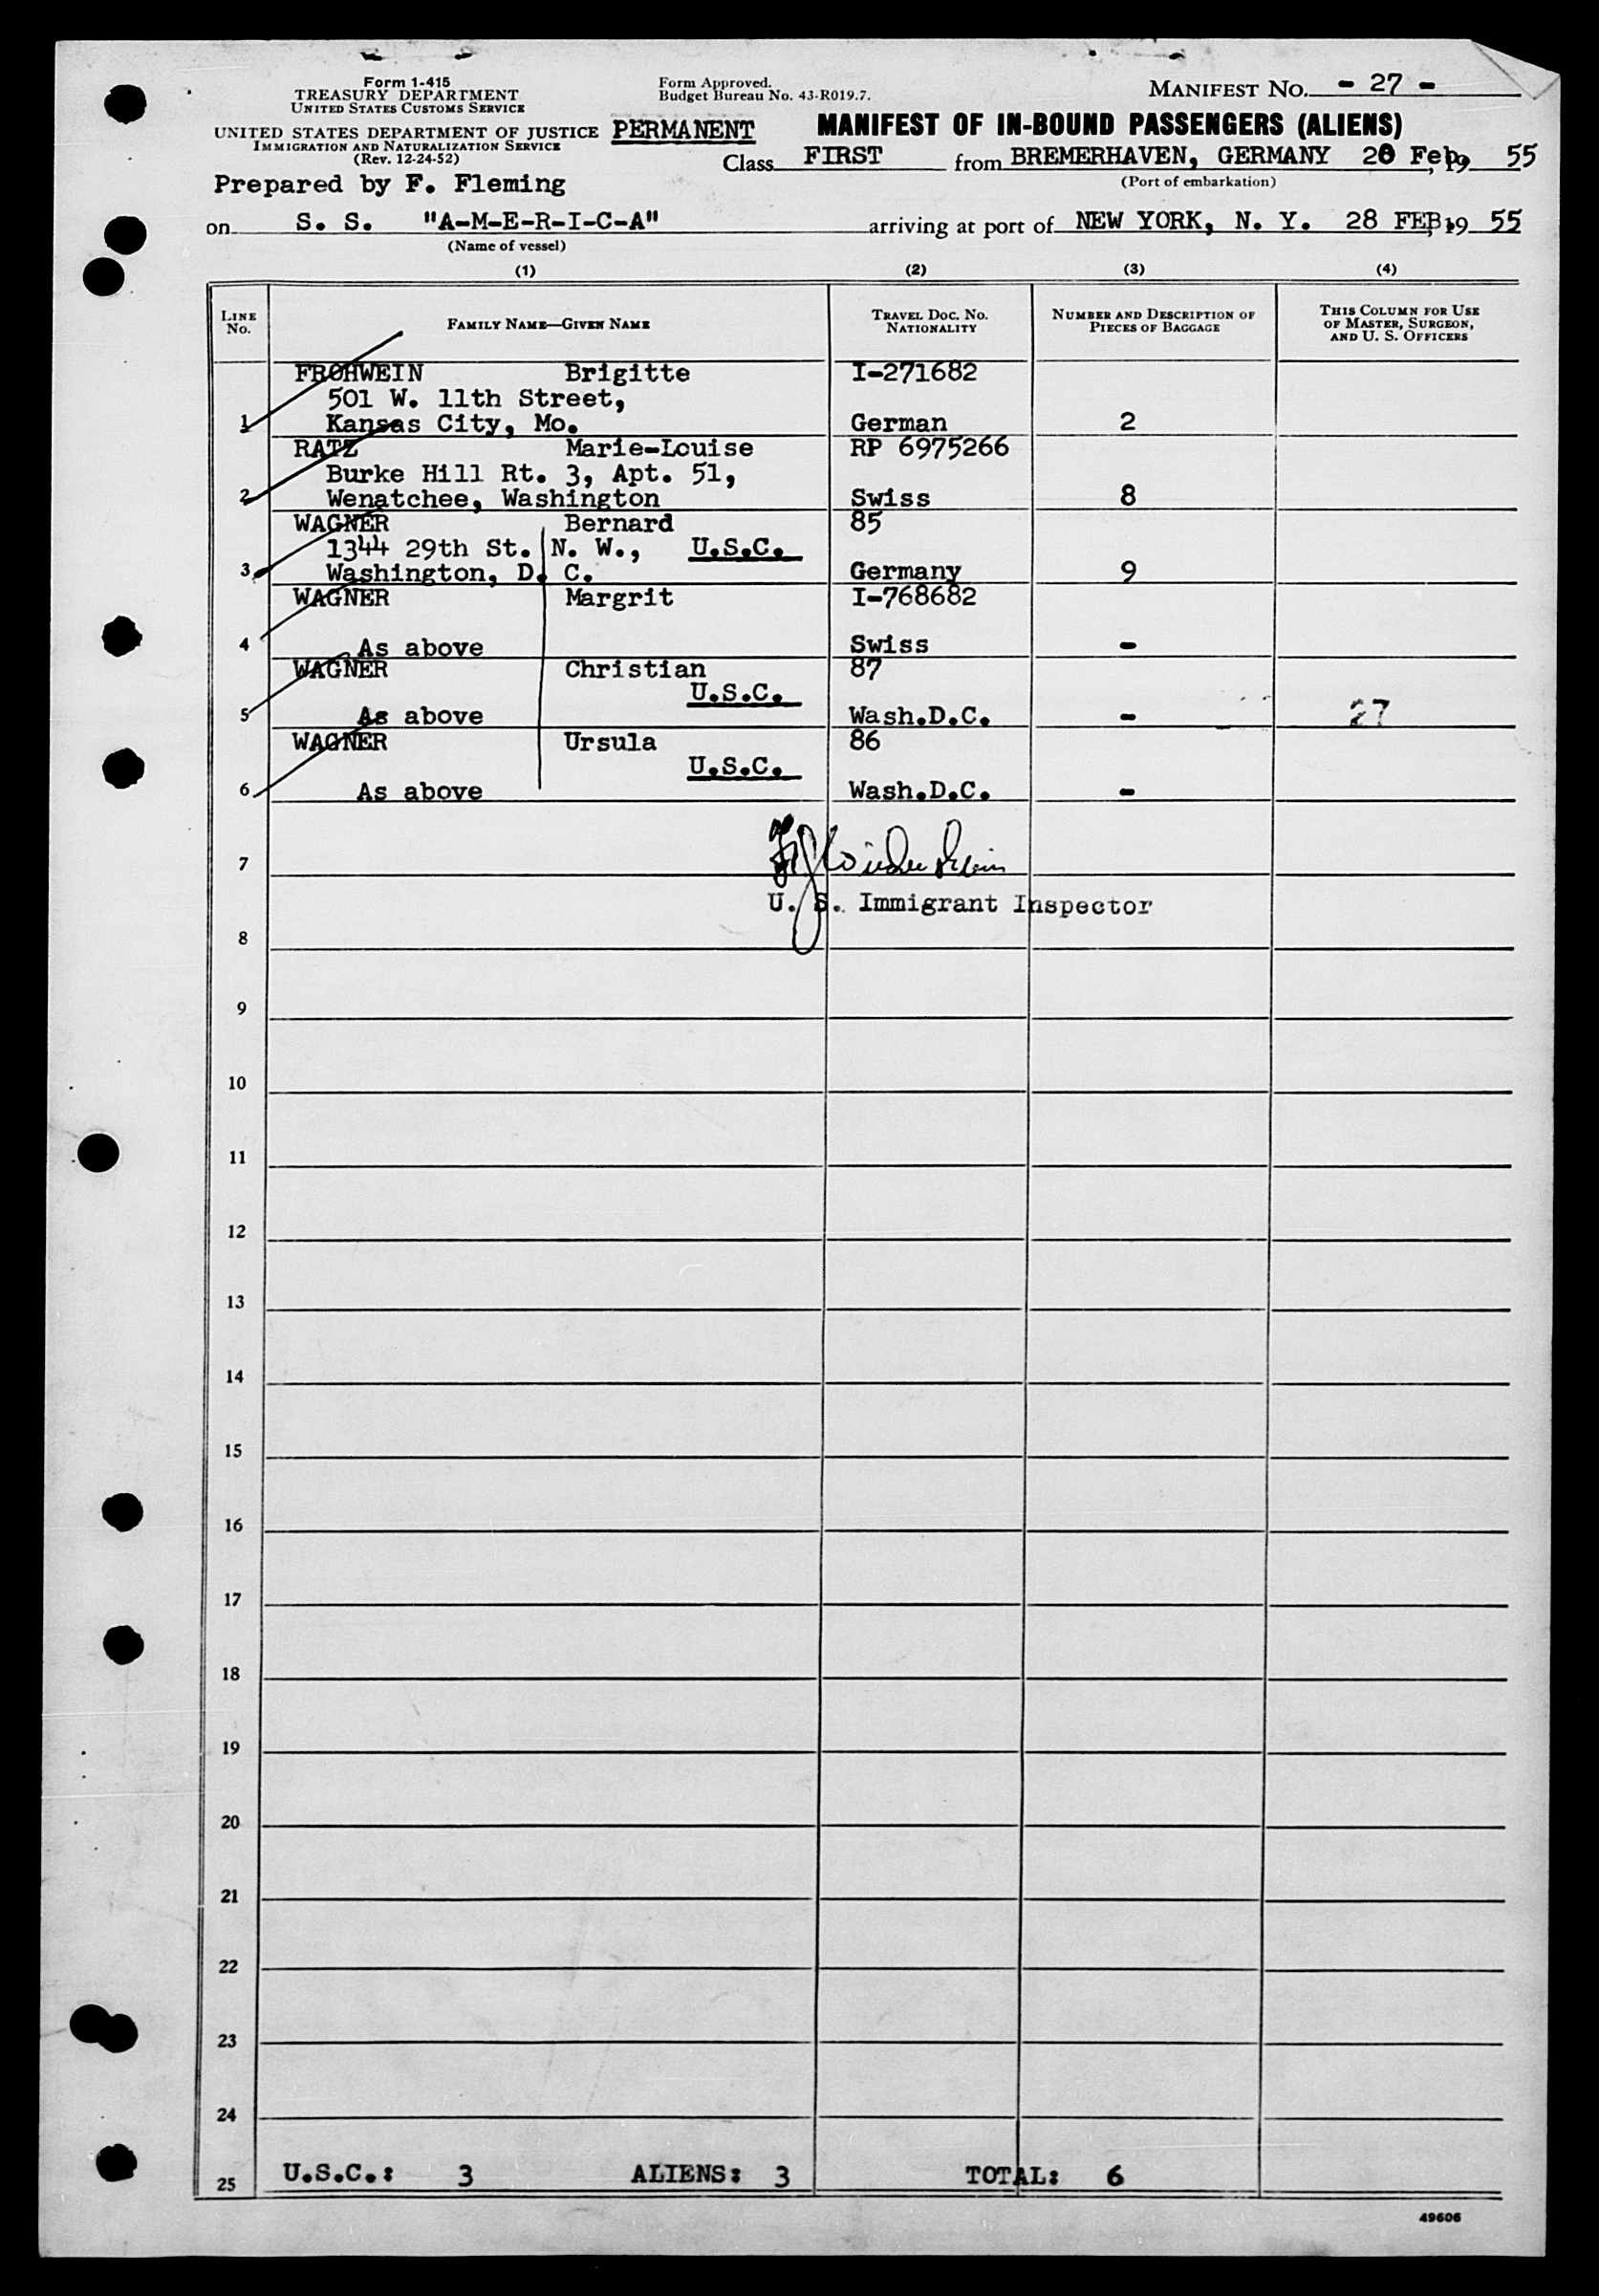 Form 1-415
TREASURY DEPARTMENT
UNITED STATES CUSTOMS SERVICE
UNITED STATES DEPARTMENT OF JUSTICE
IMMIGRATION AND NATURALIZATION SERVICE
(Rev. 12-24-52)
Prepared by F. Fleming
Form Approved.
Budget Bureau No. 43-R019.7.
PERMANENT
MANIFEST NO. - 27 -
MANIFEST OF IN-BOUND PASSENGERS (ALIENS)
Class FIRST from BREMERHAVEN, GERMANY 20 Feb, 19 55
(Port of embarkation)
on S. S. "A-M-E-R-I-C-A" arriving at port of NEW YORK, N. Y. 28 FEB, 19 55
(Name of vessel)
(1) (2) (3) (4)
LINE NO. FAMILY NAME—GIVEN NAME TRAVEL DOC. NO. NATIONALITY NUMBER AND DESCRIPTION OF PIECES OF BAGGAGE THIS COLUMN FOR USE OF MASTER, SURGEON, AND U. S. OFFICERS
FROHWEIN Brigitte I-271682
501 W. 11th Street,
1 Kansas City, Mo. German 2
RATZ Marie-Louise RP 6975266
Burke Hill Rt. 3, Apt. 51,
2 Wenatchee, Washington Swiss 8
WAGNER Bernard 85
1344 29th St. N. W., U.S.C.
3 Washington, D. C. Germany 9
WAGNER Margrit I-768682
4 As above Swiss -
WAGNER Christian 87
U.S.C.
5 As above Wash.D.C. - 27
WAGNER Ursula 86
U.S.C.
6 As above Wash.D.C. -
7
U. S. Immigrant Inspector
8
9
10
11
12
13
14
15
16
17
18
19
20
21
22
23
24
25 U.S.C.: 3 ALIENS: 3 TOTAL: 6
49606